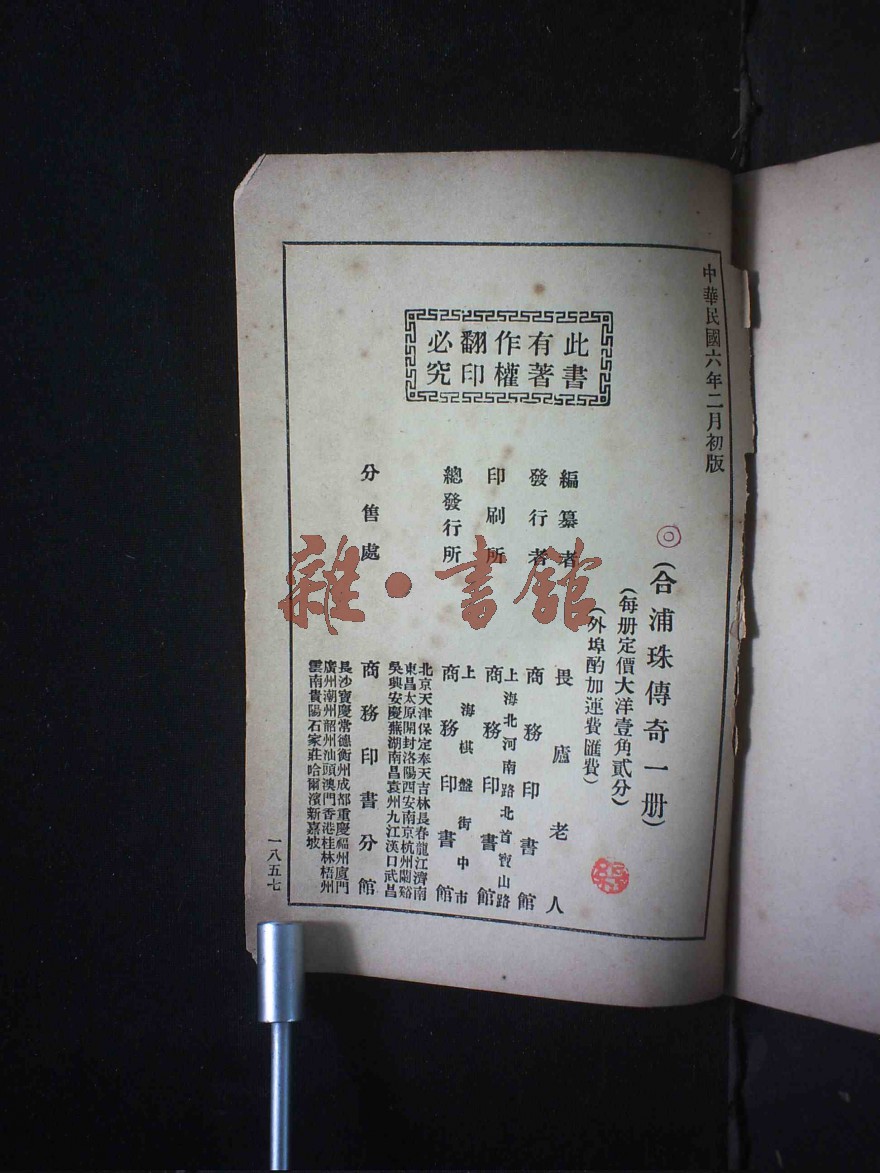 中華民國六年二月初版
此書
有著
作權
翻印
必究
◎(合浦珠傳奇一册)
(每册定價大洋壹角貳分)
(外埠酌加運費匯費)
編纂者 畏廬老人
發行者 商務印書館
印刷所 上海北河南路北首寶山路
商務印書館
總發行所 上海棋盤街中市
商務印書館
分售處 北京天津保定奉天吉林長春龍江濟南
東昌太原開封洛陽西安南京杭州蘭谿
吳興安慶蕪湖南昌袁州九江漢口武昌
商務印書分館
長沙寶慶常德衡州成都重慶福州廈門
廣州潮州韶州汕頭澳門香港桂林梧州
雲南貴陽石家莊哈爾濱新嘉坡
一八五七
雜·書館